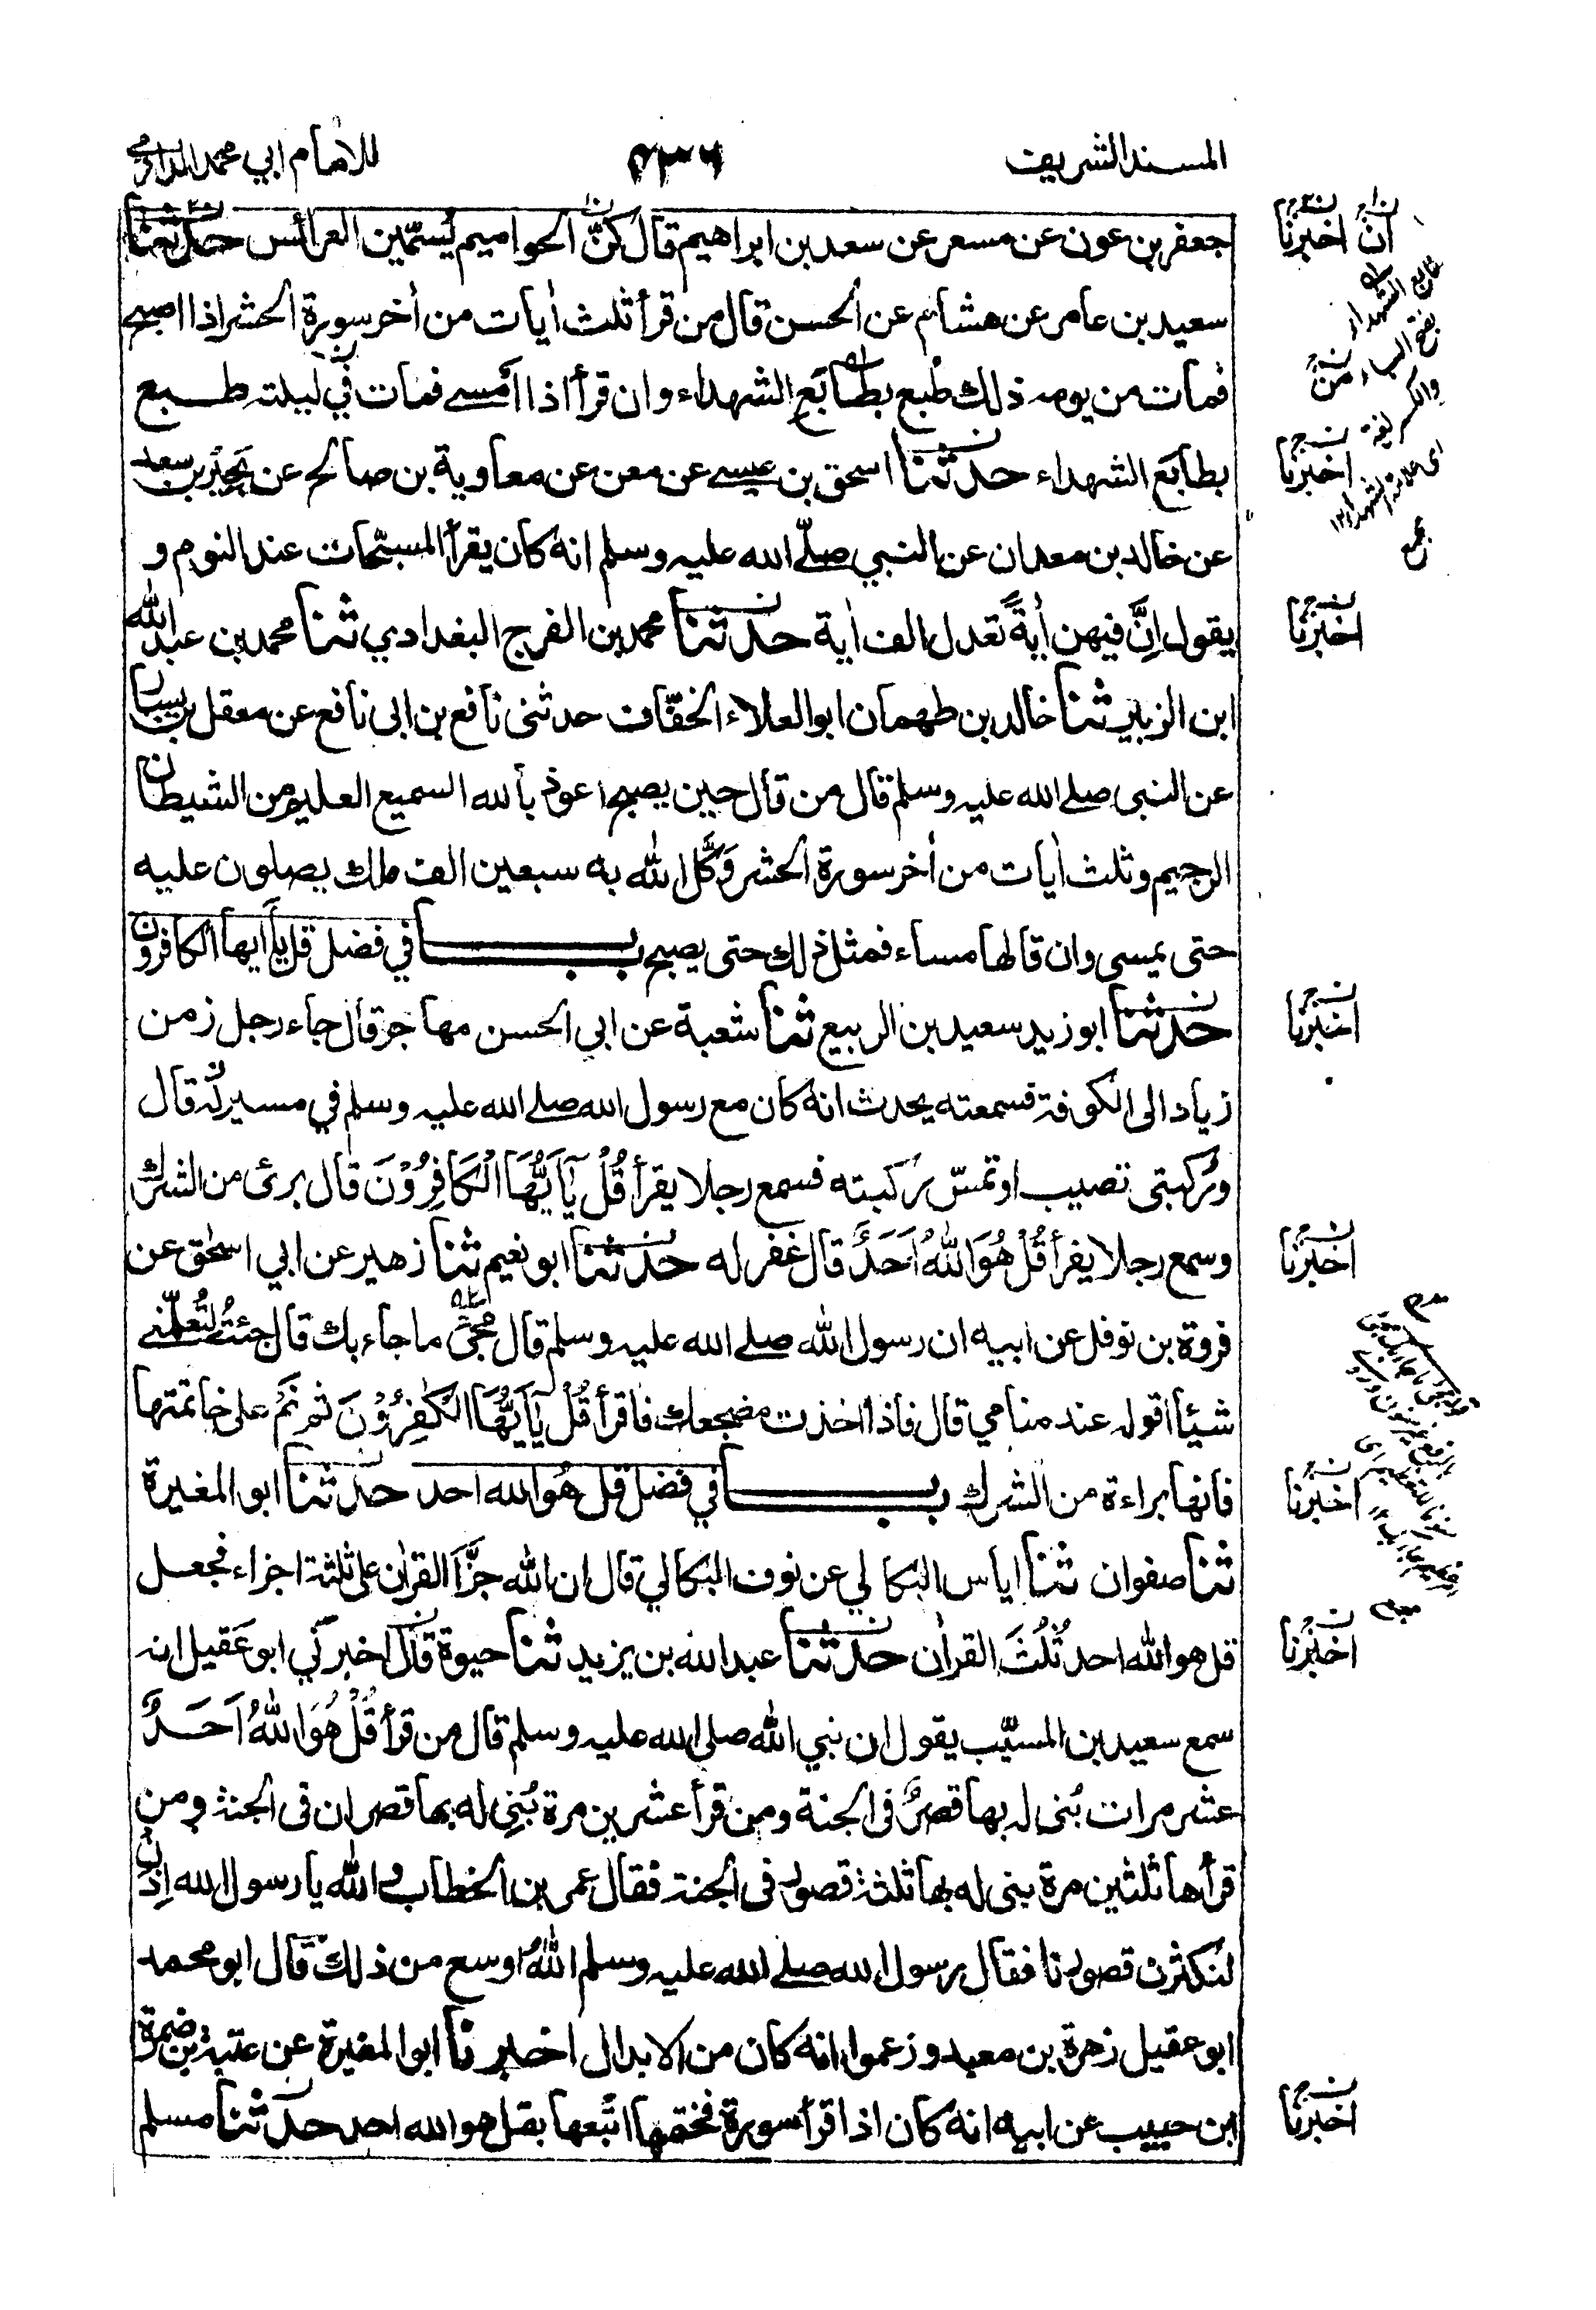 المسند الشريف ٤٣٦ للامام ابي محمد الدارمي
جعفر بن عون عن مسعر عن سعد بن ابراهيم قال كنّ الحواميم يُسمّين العرائس حدثنا
سعيد بن عامر عن هشام عن الحسن قال من قرأ ثلث اٰيات من اٰخر سورة الحشر اذا اصبح
فمات من يومه ذلك طُبع بطابَع الشهداء وان قرأ اذا امسے فمات في ليلته طبع
بطابَع الشهداء حدثنا اسحق بن عيسے عن معن عن معاوية بن صالح عن بَحِيْر بن سعد
عن خالد بن معدان عن النبي صلّے الله عليه وسلم انه كان يقرأ المسبّحات عند النوم و
يقول اِنَّ فيهن اٰيةً تعدل الف اٰية حدثنا محمد بن الفرج البغدادي ثنا محمد بن عبد الله
ابن الزبير ثنا خالد بن طهمان ابو العلاء الخفّاف حدثنى نافع بن ابى نافع عن معقل بن يسار
عن النبى صلے الله عليه وسلم قال من قال حين يصبح اعوذ بالله السميع العليم من الشيطان
الرجيم وثلث اٰيات من اٰخر سورة الحشر وَكَّل الله به سبعين الف ملك يصلون عليه
حتى يمسى وان قالها مساء فمثل ذلك حتى يصبح باب في فضل قل يا ايها الكافرون
حدثنا ابو زيد سعيد بن الربيع ثنا شعبة عن ابي الحسن مهاجر قال جاء رجل زمن
زياد الى الكوفة فسمعته يحدث انه كان مع رسول الله صلے الله عليه وسلم في مسير له قال
وركبتى تصيب او تمسّ ركبته فسمع رجلا يقرأ قُلْ يٰٓاَيُّهَا الْكَافِرُوْنَ قال برئ من الشرك
وسمع رجلا يقرأ قُلْ هُوَ اللهُ اَحَدٌ قال غفر له حدثنا ابو نعيم ثنا زهير عن ابي اسحٰق عن
فروة بن نوفل عن ابيه ان رسول الله صلے الله عليه وسلم قال مجئ ما جاء بك قال جئتُ لتُعلّمنے
شيئا اقوله عند منامي قال فاذا اخذت مضجعك فاقرأ قُلْ يٰٓاَيُّهَا الْكٰفِرُوْنَ ثم نَمْ على خاتمتها
فانها براءة من الشرك باب في فضل قل هُو الله احد حدثنا ابو المغيرة
ثنا صفوان ثنا اياس البكالي عن نوف البكالي قال ان الله جزَّأ القراٰن على ثلثة اجزاء فجعل
قل هو الله احد ثُلُثَ القراٰن حدثنا عبد الله بن يزيد ثنا حيوة قال اخبرني ابو عَقيل انه
سمع سعيد بن المسيّب يقول ان نبي الله صلى الله عليه وسلم قال من قرأ قُلْ هُوَ اللهُ اَحَدٌ
عشر مرات بُنى له بها قصرٌ فى الجنة ومن قرأ عشرين مرة بُنِى له بها قصران فى الجنة ومن
قرأها ثلثين مرة بنى له بها ثلثة قصور فى الجنة فقال عمر بن الخطاب والله يا رسول الله اِذن
لنكثرن قصورنا فقال رسول الله صلے الله عليه وسلم اللهُ اوسع من ذلك قال ابو محمد
ابو عقيل زهرة بن معبد وزعموا انه كان من الابدال اخبرنا ابو المغيرة عن عتبة بن ضمرة
ابن حبيب عن ابيه انه كان اذا قرأ سورة فختمها اتبعها بقل هو الله احد حدثنا مسلم
انّ اخبرنا
طابع الشهداء
بفتح الباء
من
والكسر لغة
اخبرنا
اخبرنا
اخبرنا
اخبرنا
اخبرنا
اخبرنا
اخبرنا